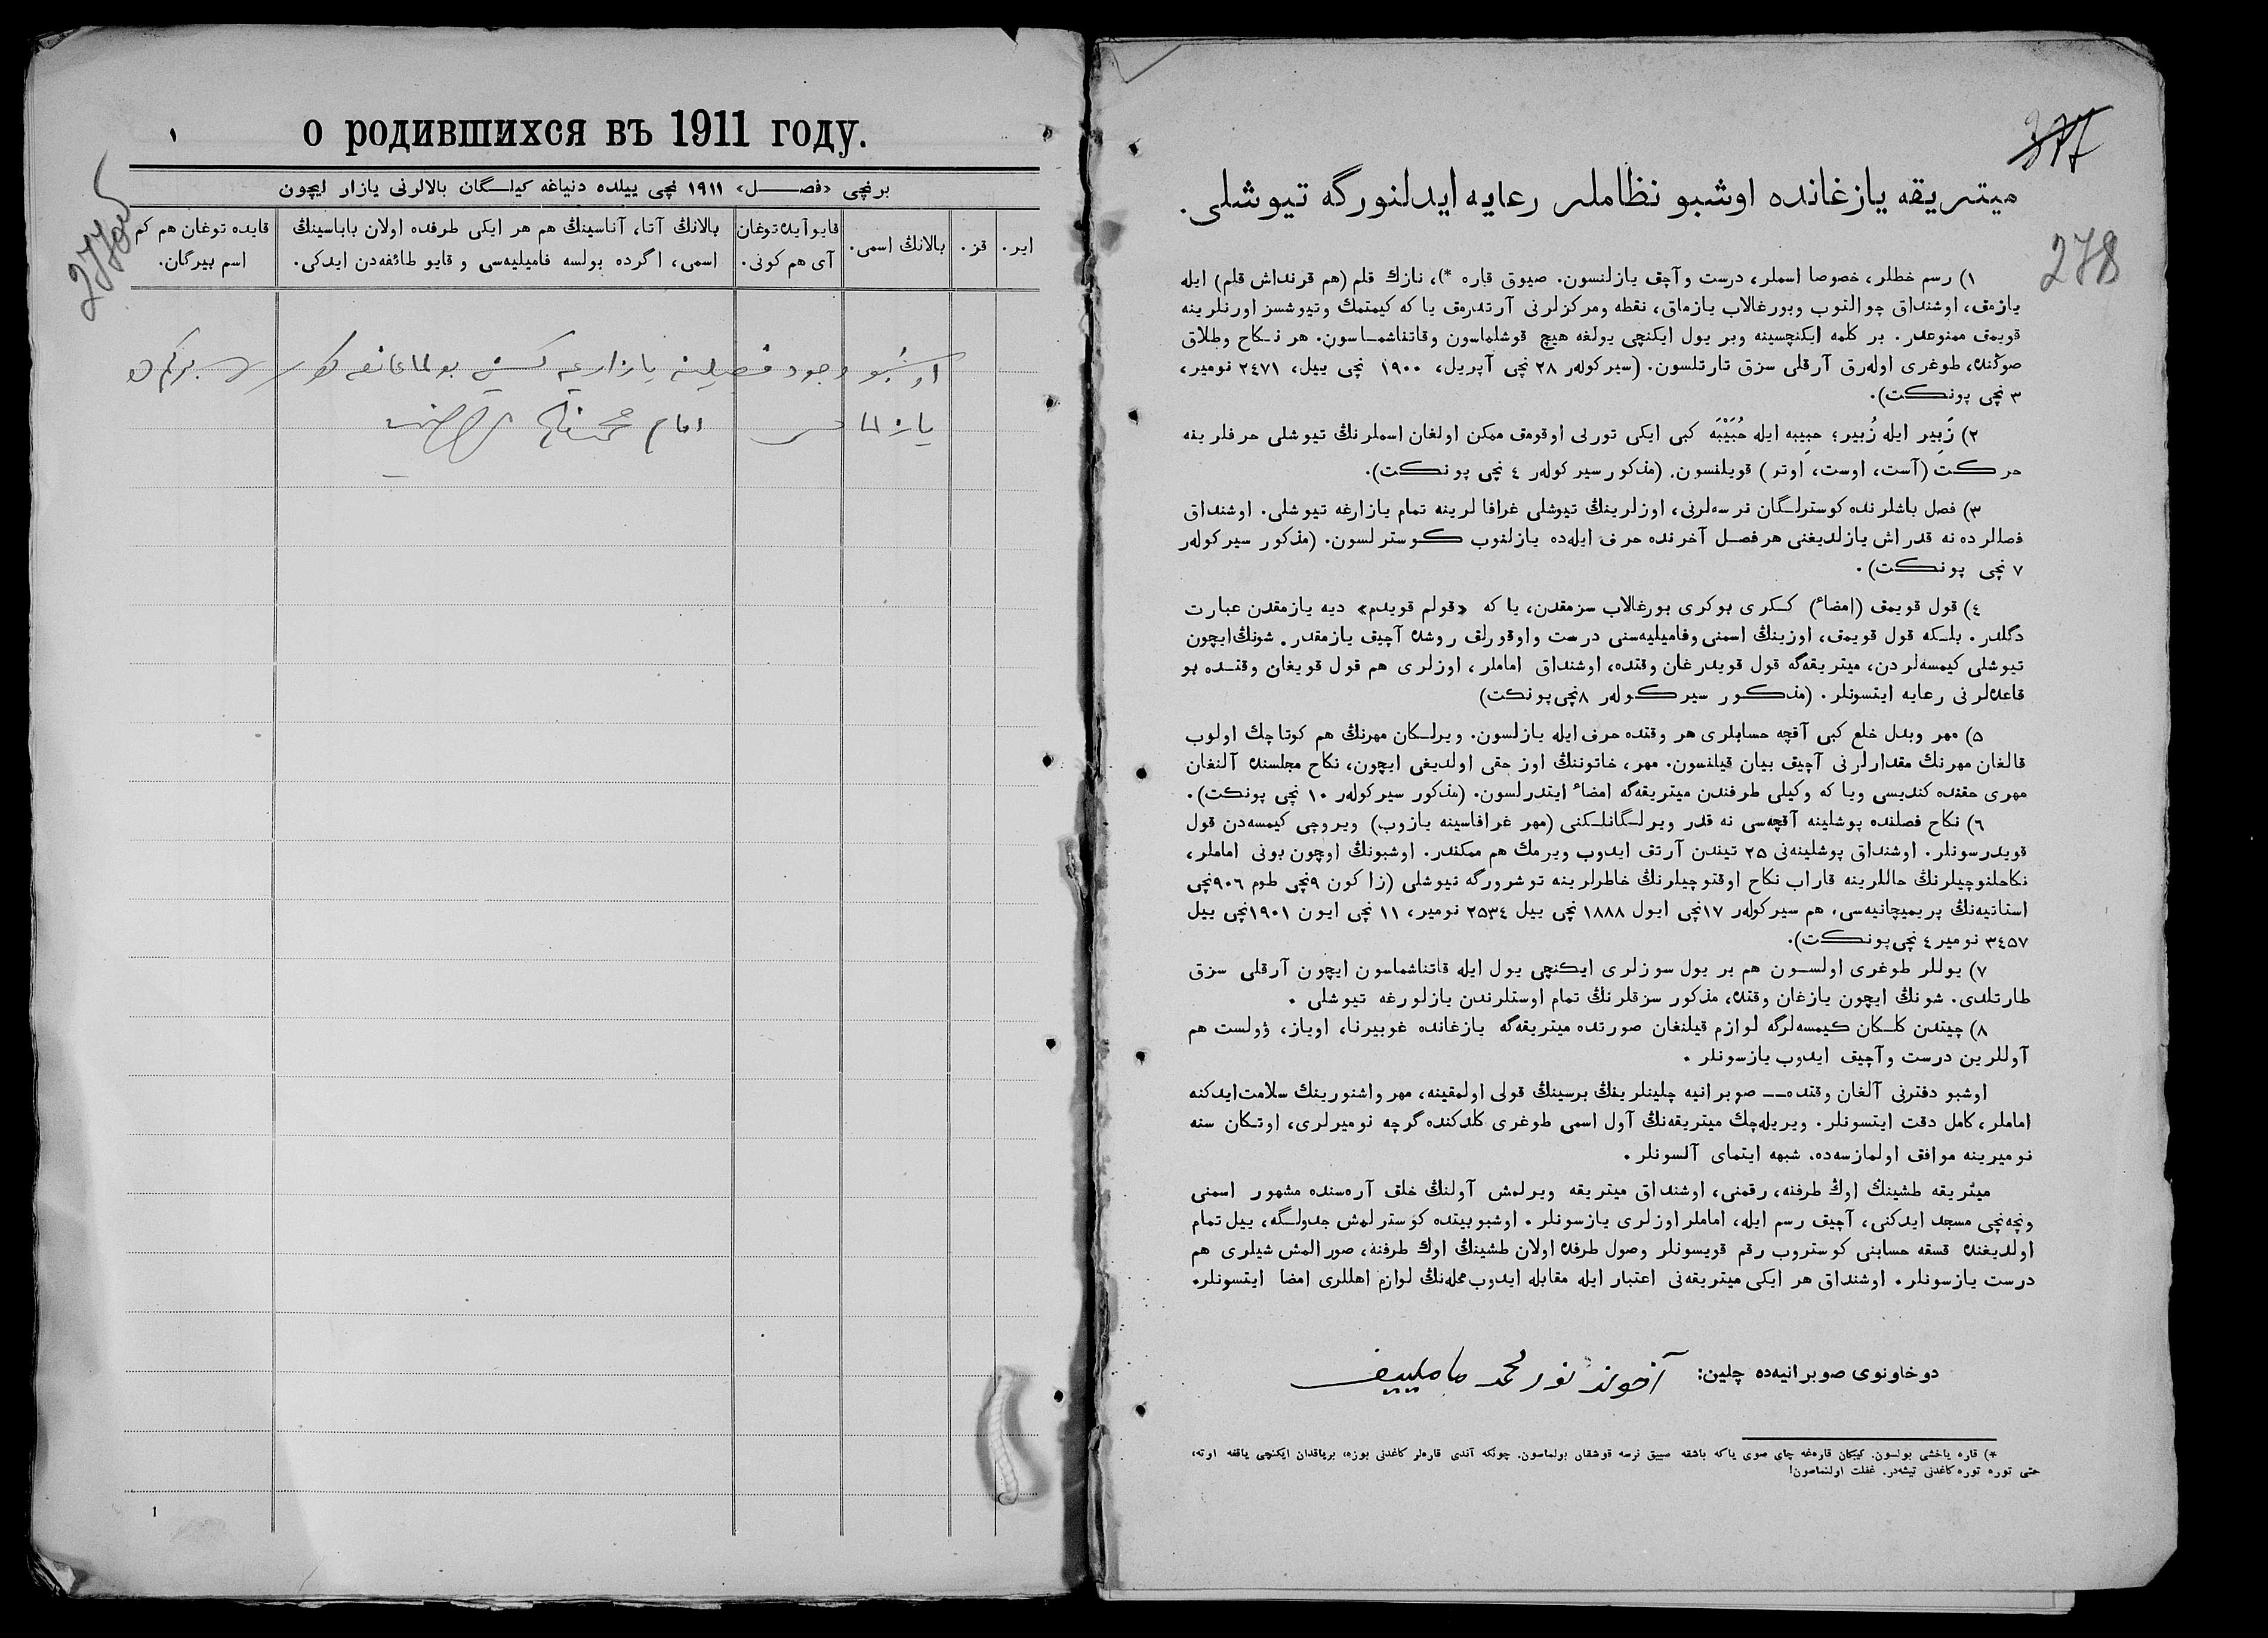 о родившихся въ 1911 году.
١
277об
برنچی «فصل» ١٩١١ نچی ییلده دنیاغه كیلگان بالالرنی یازار ایچون
ایر.
قز.
بالانڭ اسمی.
قایو آیده توغان
آی هم كونی.
بالانڭ آتا، آناسینڭ هم هر ایكی طرفده اولان باباسینڭ
اسمی، اگرده بولسه فامیلیه‌سی و قایو طائفه‌دن ایدكی.
قایده توغان هم كم
اسم بیرگان.
اوشبو وجود فصلینه یازارغه كشی بولماغانغه كوره
امام
1
377
278
میتریقه یازغانده اوشبو نظاملر رعایه ایدلنورگه تیوشلی.
١) رسم خطلر، خصوصا اسملر، درست و آچق یازلنسون. صیوق قاره *)، نازك قلم (هم قرنداش قلم) ایله
یازمق، اوشنداق چوالتوب وبورغالاب یازماق، نقطه ومركزلرنی آرتدرمق یا كه كیمتمك وتیوشسز اورنلرینه
قویمق ممنوعدر. بر كلمه ایكنچسینه وبر یول ایكنچی یولغه هیچ قوشلماسون وقاتناشماسون. هر نكاح وطلاق
صوڭنده، طوغری اوله‌رق آرقلی سزق تارتلسون. (سیركولەر ٢٨ نچی آپریل، ١٩٠٠ نچی ییل، ٢٤٧١ نومیر،
٣ نچی پونكت).
٢) زَبِیر ایله زُبیر؛ حبِیبه ایله حُبَیْبَه كبی ایكی تورلی اوقومق ممكن اولغان اسملرنڭ تیوشلی حرفلرینه
حركت (آست، اوست، اوتر) قویلنسون. (مذكور سیركولەر ٤ نچی پونكت).
٣) فصل باشلرنده كوسترلگان نرسه‌لرنی، اوزلرینڭ تیوشلی غرافا لرینه تمام یازارغه تیوشلی. اوشنداق
فصللرده نه قدر اش یازلدیغنی هر فصل آخرنده حرف ایله‌ده یازلنوب كوسترلسون. (مذكور سیركولەر
٧ نچی پونكت).
٤) قول قویمق (امضاء) ككری بوكری بورغالاب سزمقدن، یا كه «قولم قویدم» دیه یازمقدن عبارت
دگلدر. بلكه قول قویمق، اوزینڭ اسمنی وفامیلیه‌سنی درست واوقورلق روشده آچیق یازمقدر. شونڭ ایچون
تیوشلی كیمسه‌لردن، میتریقه‌گه قول قویدرغان وقتده، اوشنداق اماملر، اوزلری هم قول قویغان وقتده بو
قاعده‌لرنی رعایه ایتسونلر. (مذكور سیركولەر ٨نچی پونكت)
٥) مهر وبدل خلع كبی آقچه حسابلری هر وقتده حرف ایله یازلسون. ویرلكان مهرنڭ هم كوتاچك اولوب
قالغان مهرنڭ مقدارلرنی آچیق بیان قیلنسون. مهر، خاتوننڭ اوز حقی اولدیغی ایچون، نكاح مجلسنده آلنغان
مهری حقنده كندیسی ویا كه وكیلی طرفندن میتریقه‌گه امضاء ایتدرلسون. (مذكور سیركولەر ١٠ نچی پونكت).
٦) نكاح فصلنده پوشلینه آقچه‌سی نه قدر ویرلگانلكنی (مهر غرافاسینه یازوب) ویروچی كیمسه‌دن قول
قویدرسونلر. اوشنداق پوشلینه‌نی ٢٥ تیندن آرتق ایدوب ویرمك هم ممكندر. اوشبونڭ اوچون بونی اماملر،
نكاحلنوچیلرنڭ حاللرینه قاراب نكاح اوقتوچیلرنڭ خاطرلرینه توشرورگه تیوشلی (زاكون ٩نچی طوم ٩٠٦نچی
استاتیه‌نڭ پریمیچانیه‌سی، هم سیركولەر ١٧نچی ایول ١٨٨٨ نچی ییل ٢٥٣٤ نومیر، ١١ نچی ایون ١٩٠١نچی ییل
٣٤٥٧ نومیر ٤ نچی پونكت).
٧) یوللر طوغری اولسون هم بر یول سوزلری ایكنچی یول ایله قاتناشماسون ایچون آرقلی سزق
طارتلدی. شونڭ ایچون یازغان وقتده، مذكور سزقلرنڭ تمام اوستلرندن یازلورغه تیوشلی.
٨) چیتدن كلكان كیمسه‌لرگه لوازم قیلنغان صورتده میتریقه‌گه یازغانده غوبیرنا، اویاز، ڤولست هم
آوللرین درست وآچیق ایدوب یازسونلر.
اوشبو دفترنی آلغان وقتده— صوبرانیه چلینلرینڭ برسینڭ قولی اولمقینه، مهر واشنورینڭ سلامت ایدكنه
اماملر، كامل دقت ایتسونلر. ویریله‌چك میتریقه‌نڭ آول اسمی طوغری كلدكنده گرچه نومیرلری، اوتكان سنه
نومیرینه موافق اولمازسه‌ده، شبهه ایتمای آلسونلر.
میتریقه طشینڭ اوڭ طرفنه، رقمنی، اوشنداق میتریقه ویرلمش آولنڭ خلق آره‌سنده مشهور اسمنی
ونچه‌نچی مسجد ایدكنی، آچیق رسم ایله، اماملر اوزلری یازسونلر. اوشبو بیتده كوسترلمش جدولگه، ییل تمام
اولدیغنده قسقه حسابنی كوستروب رقم قویسونلر وصول طرفده اولان طشینڭ اوڭ طرفنه، صورالمش شیلری هم
درست یازسونلر. اوشنداق هر ایكی میتریقه‌نی اعتبار ایله مقابله ایدوب محله‌نڭ لوازم اهللری امضا ایتسونلر.
دوخاونوی صوبرانیه‌ده چلین: آخوند نور محمد ماملییف
*) قاره یاخشی بولسون. كیبكان قاره‌غه چای صوی یا كه باشقه صییق نرسه قوشقان بولماسون. چونكه آندی قاره‌لر كاغدنی بوزه، بریاقدان ایكنچی یاققه اوته،
حتی توره توره كاغدنی تیشه‌در. غفلت اولنماصون!